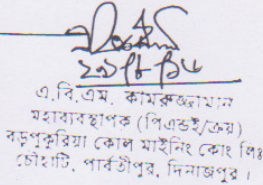 ২১/৮/১৮
এ.বি.এম. কামরুজ্জামান
মহাব্যবস্থাপক (পিএন্ডই/ক্রয়)
বড়পুকুরিয়া কোল মাইনিং কোং লিঃ
চৌহাটি, পার্বতীপুর, দিনাজপুর।